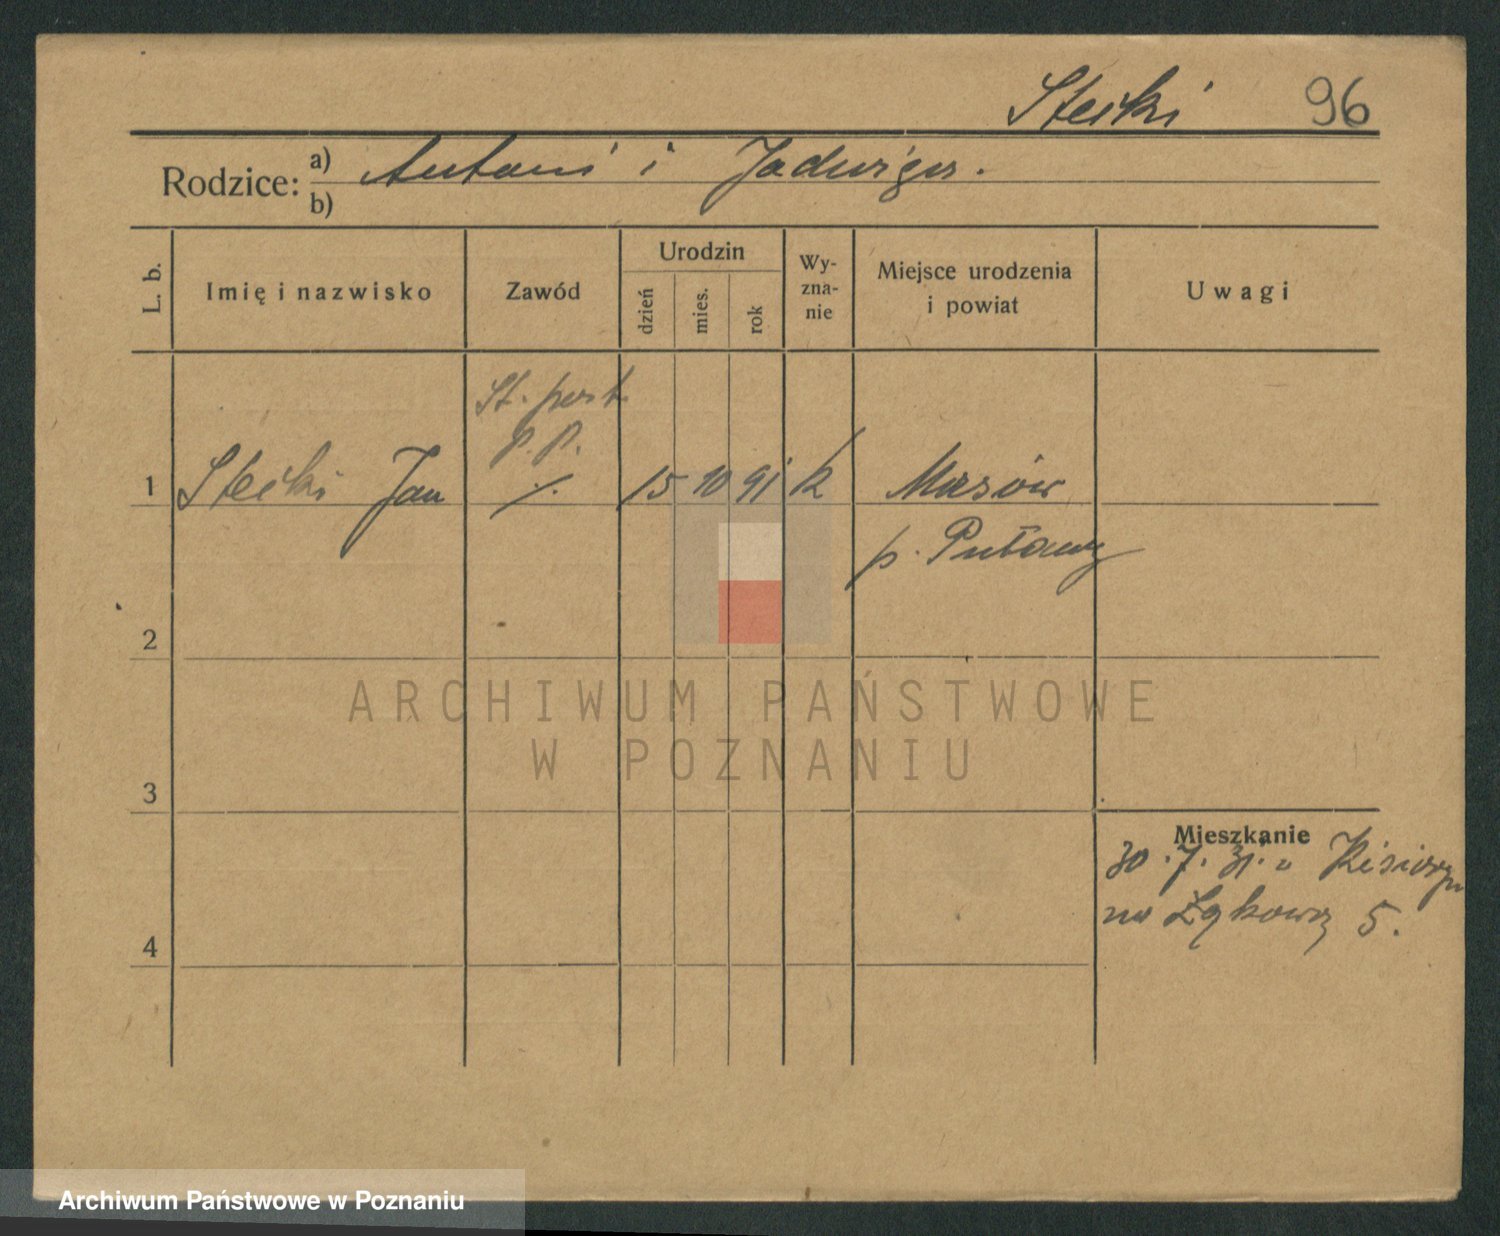 Stecki 96
Rodzice: a) Antoni i Jadwiga.
b)
L. b.
Imię i nazwisko
Zawód
Urodzin
dzień
mies.
rok
Wy-
zna-
nie
Miejsce urodzenia
i powiat
Uwagi
St. post.
P. P.
1 Stecki Jan ./. 15 10 91 k
p. Puławy
2
3
4
ARCHIWUM PAŃSTWOWE
W POZNANIU
Mieszkanie
30.7.31. u
na Łąkowa 5.
Archiwum Państwowe w Poznaniu